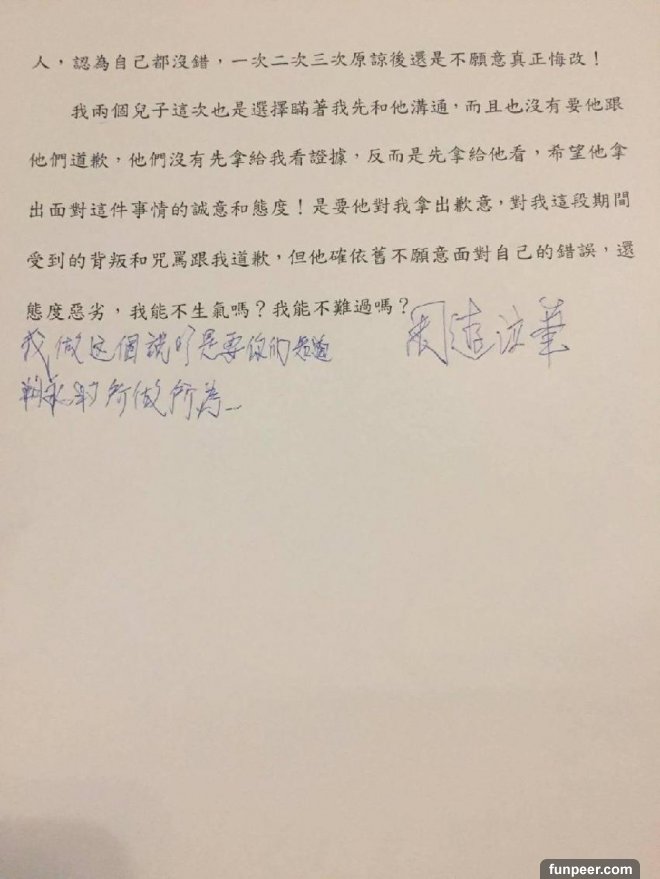 人，認為自己都沒錯，一次二次三次原諒後還是不願意真正悔改！
我兩個兒子這次也是選擇瞞著我先和他溝通，而且也沒有要他跟
他們道歉，他們沒有先拿給我看證據，反而是先拿給他看，希望他拿
出面對這件事情的誠意和態度！是要他對我拿出歉意，對我這段期間
受到的背叛和咒罵跟我道歉，但他確依舊不願意面對自己的錯誤，還
態度惡劣，我能不生氣嗎？我能不難過嗎？
我做这個說明是要你们知道
所做所為
funpeer.com